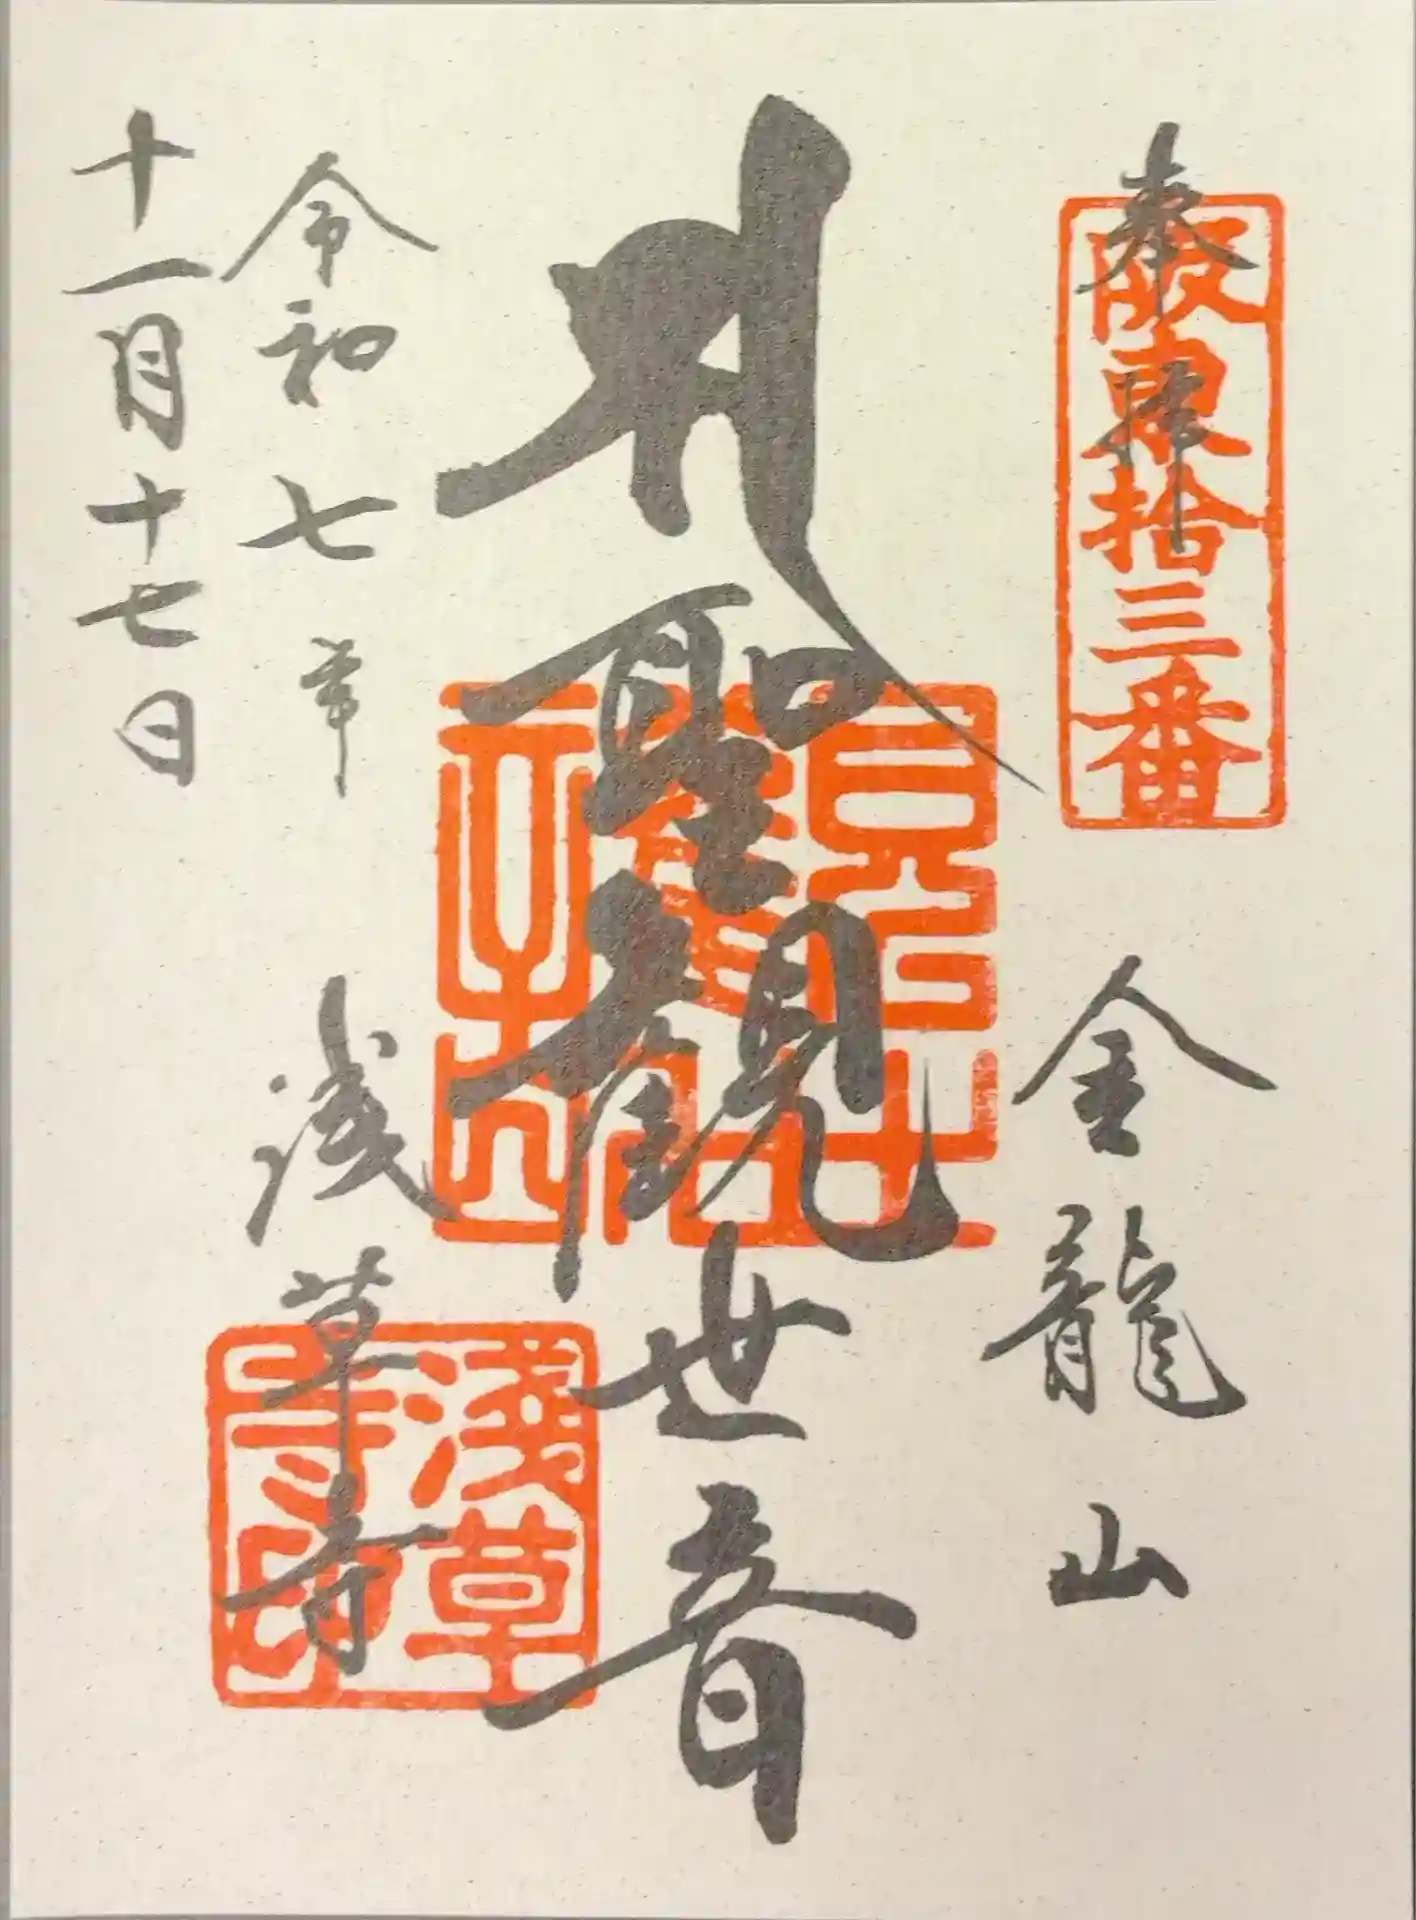 奉拝
阪東拾三番
金龍山
聖観世音
令和七年
十一月十七日
浅草寺
淺草寺印